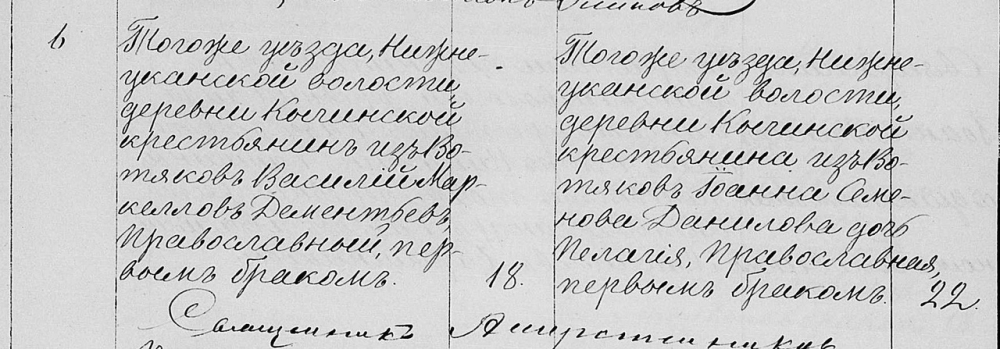 6
Тогоже уѣзда, Нижне-
уканской волости,
деревни Кычинской
крестьянинъ изъ Во-
тяковъ Василій Мар-
келловъ Дементьевъ,
Православный, пер-
вымъ бракомъ.
18.
Тогоже уѣзда, Нижне-
уканской волости,
деревни Кычинской
крестьянина изъ Во-
тяковъ Іоанна Семе-
нова Данилова дочь
Пелагія, Православная,
первымъ бракомъ.
22.
Священникъ